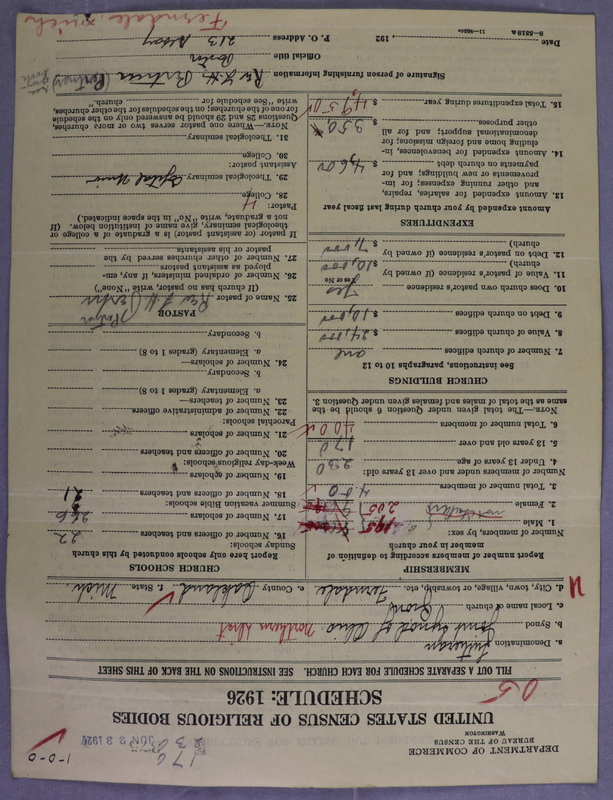 1-0-0
DEPARTMENT OF COMMERCE
BUREAU OF THE CENSUS
WASHINGTON
UNITED STATES CENSUS OF RELIGIOUS BODIES
SCHEDULE: 1926
FILL OUT A SEPARATE SCHEDULE FOR EACH CHURCH. SEE INSTRUCTIONS ON THE BACK OF THIS SHEET
a. Denomination Lutheran
b. Synod Joint Synod of Ohio Northern Dist
c. Local name of church
d. City, town, village, or township, etc. Ferndale e. County Oakland f. State Mich.
MEMBERSHIP
Report number of members according to definition of
member in your church
Number of members, by sex:
1. Male 195
2. Female 205
3. Total number of members 400
Number of members under and over 13 years old:
4. Under 13 years of age 230
5. 13 years old and over 170
6. Total number of members 400
NOTE—The total given under Question 6 should be the
same as the total of males and females given under Question 3.
CHURCH BUILDINGS
See Instructions, paragraphs 10 to 12
7. Number of church edifices one
8. Value of church edifices $ 24,000
9. Debt on church edifices $ 10,000
10. Does church own pastor's residence Yes
Yes or No
11. Value of pastor's residence (if owned by
church) $ 10,000
12. Debt on pastor's residence (if owned by
church) $ 7,000
EXPENDITURES
Amount expended by your church during last fiscal year
13. Amount expended for salaries, repairs,
and other running expenses; for im-
provements or new buildings; and for
payments on church debt $ 4,600
14. Amount expended for benevolences, in-
cluding home and foreign missions; for
denominational support; and for all
other purposes $ 350
15. Total expenditures during year $ 4,950
CHURCH SCHOOLS
Report here only schools conducted by this church
Sunday schools:
16. Number of officers and teachers 22
17. Number of scholars 266
Summer vacation Bible schools:
18. Number of officers and teachers 21
19. Number of scholars
Week-day religious schools:
20. Number of officers and teachers
21. Number of scholars
Parochial schools:
22. Number of administrative officers
23. Number of teachers—
a. Elementary (grades 1 to 8)
b. Secondary
24. Number of scholars—
a. Elementary (grades 1 to 8)
b. Secondary
PASTOR
25. Name of pastor Rev
(If church has no pastor, write "None")
26. Number of ordained ministers, if any, em-
ployed as assistant pastors
27. Number of other churches served by the
pastor or his assistants
If pastor (or assistant pastor) is a graduate of a college or
theological seminary, give name of institution below. (If
not a graduate, write "No" in the space indicated.)
Pastor:
28. College
29. Theological seminary Capital Univ
Assistant pastor:
30. College
31. Theological seminary
NOTE—Where one pastor serves two or more churches,
Questions 28 and 29 should be answered only on the schedule
for one of the churches; on the schedules for the other churches,
write "See schedule for church."
Signature of person furnishing information Rev
Official title Pastor
P. O. Address 213 Albany
Date , 192
Ferndale, Mich
8-5519a 11-9051